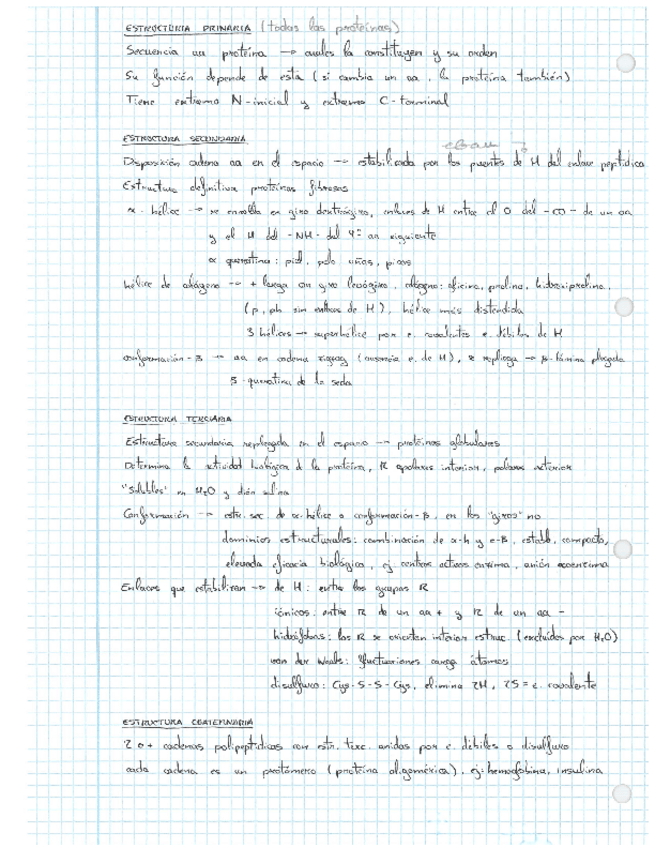 ESTRUCTURA PRIMARIA (todas las proteínas)
Secuencia aa proteína → cuales la constituyen y su orden
Su función depende de esta (si cambia un aa, la proteína también)
Tiene extremo N-inicial y extremo C-terminal
ESTRUCTURA SECUNDARIA
Disposición cadena aa en el espacio → estabilizada por los puentes de H del enlace peptídico
Estructura definitiva proteínas fibrosas
α-hélice → se enrolla en giro dextrógiro, enlaces de H entre el O del -CO- de un aa
y el H del -NH- del 4º aa siguiente
α queratina: piel, pelo uñas, picos
hélice de colágeno → + larga con giro levógiro, colágeno: glicina, prolina, hidroxiprolina.
(p, ph sin enlaces de H), hélice más distendida
3 hélices → superhélice por e. covalentes e. débiles de H
conformación-β → aa en cadena zigzag (ausencia e. de H), se repliega → β-lámina plegada
β-queratina de la seda
ESTRUCTURA TERCIARIA
Estructura secundaria replegada en el espacio → proteínas globulares
Determina la actividad biológica d la proteína, R apolares interior, polares exterior
"solubles" en H2O y disn salina
Conformación → estr. sec. de α-hélice o conformación-β, en los "giros" no
dominios estructurales: combinación de α-h y c-β, establ, compacto,
elevada eficacia biológica, ej centros activos enzima, unión
Enlaces que estabilizan → de H: entre los grupos R
iónicos: entre R de un aa + y R de un aa -
hidrófobas: los R se orientan interior estruc. (excluidos por H2O)
van der Waals: fluctuaciones carga átomos
disulfuro: Cys-S-S-Cys, elimina 2H, 2S = e. covalente
ESTRUCTURA CUATERNARIA
2 o + cadenas polipeptídicas con estr. terc. unidas por e. débiles o disulfuro
cada cadena es un protómero (proteína oligomérica), ej: hemoglobina, insulina